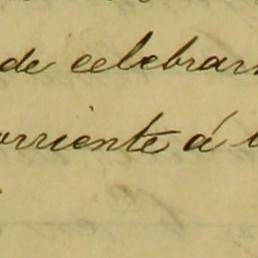 de celebrar
orriente á